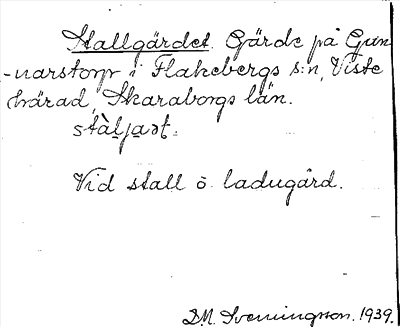 Stallgärdet. Gärde på Gun
-narstorp i Flakebergs s:n, Viste
härad, Skaraborgs län.
stàljaət.
Vid stall o. ladugård.
D.M. Svenningson. 1939.